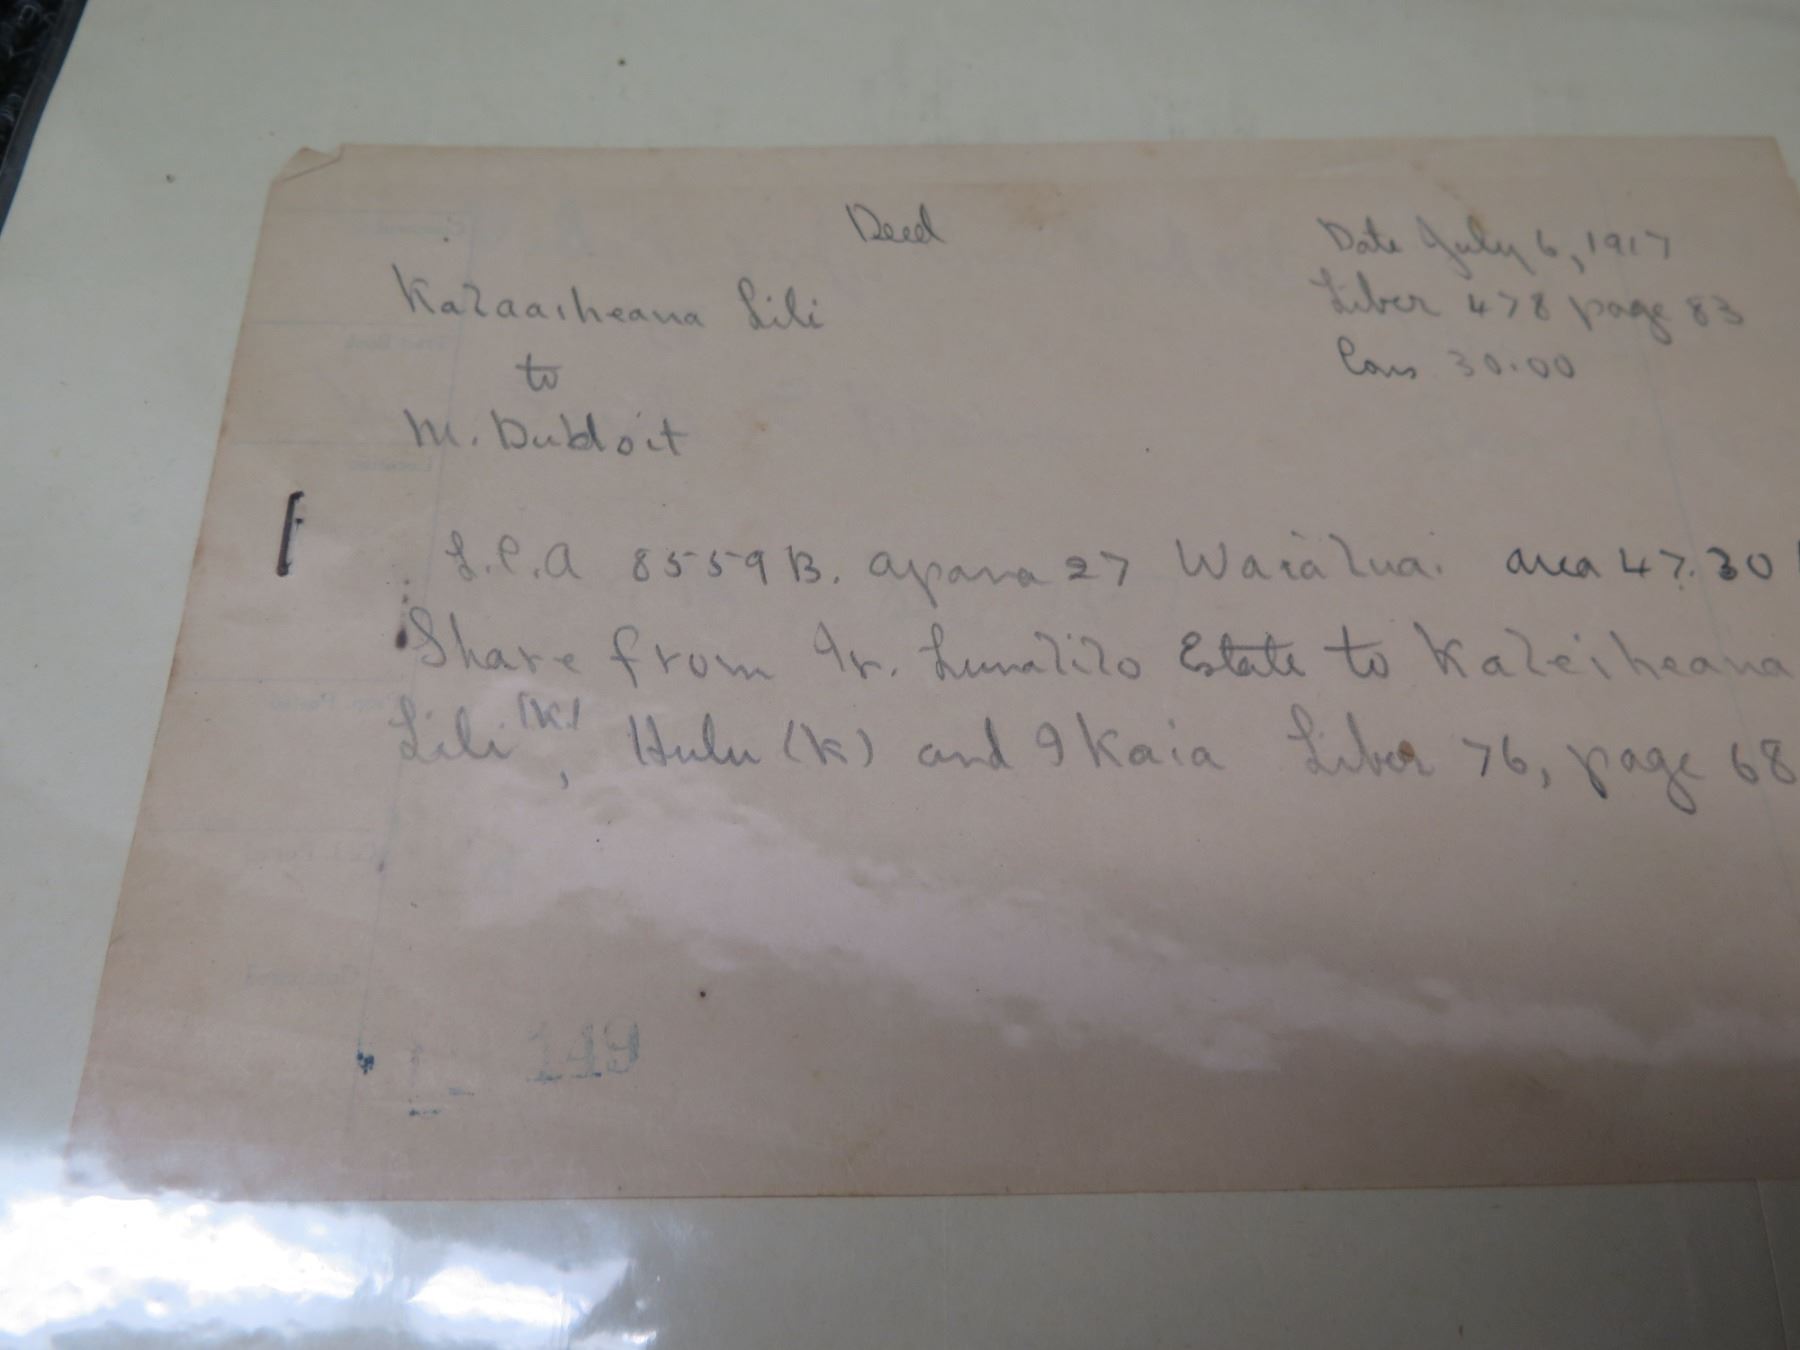 Deed
Date July 6, 1917
Liber 478 page 83
Cons 30.00
Kalaaiheana Lili
to
M. Dubloit
L.C.A 8559B. apana 27 Waialua. area 47.30
Share from Tr. Lunalilo Estate to Kaleiheana
Lili (K), Hulu (K) and I Kaia Liber 76, page 68